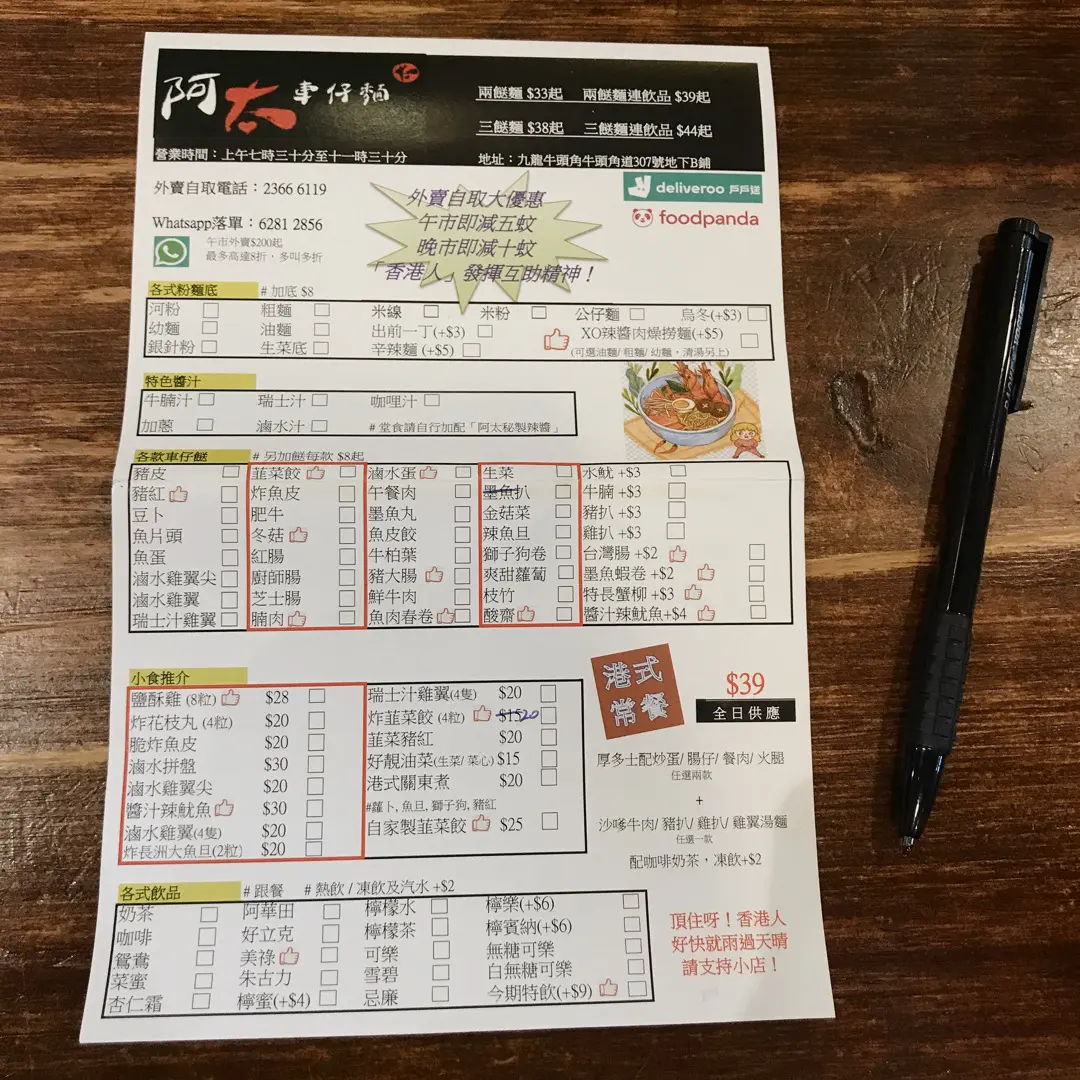 阿太車仔麵
兩餸麵 $33起 兩餸麵連飲品 $39起
三餸麵 $38起 三餸麵連飲品 $44起
營業時間：上午七時三十分至十一時三十分
地址：九龍牛頭角牛頭角道307號地下B鋪
外賣自取電話：2366 6119
Whatsapp落單：6281 2856
午市外賣$200起
最多高達8折，多叫多折
外賣自取大優惠
午市即減五蚊
晚市即減十蚊
「香港人」發揮互助精神！
deliveroo 戶戶送
foodpanda
各式粉麵底 # 加底 $8
河粉 粗麵 米線 米粉 公仔麵 烏冬(+$3)
幼麵 油麵 出前一丁(+$3) XO辣醬肉燥撈麵(+$5)
銀針粉 生菜底 辛辣麵 (+$5) (可選油麵/ 粗麵/ 幼麵，清湯另上)
特色醬汁
牛腩汁 瑞士汁 咖哩汁
加蔥 滷水汁 # 堂食請自行加配「阿太秘製辣醬」
各款車仔餸 # 另加餸每款 $8起
豬皮 韮菜餃 滷水蛋 生菜 水魷 +$3
豬紅 炸魚皮 午餐肉 墨魚扒 牛腩 +$3
豆卜 肥牛 墨魚丸 金菇菜 豬扒 +$3
魚片頭 冬菇 魚皮餃 辣魚旦 雞扒 +$3
魚蛋 紅腸 牛柏葉 獅子狗卷 台灣腸 +$2
滷水雞翼尖 廚師腸 豬大腸 爽甜蘿蔔 墨魚蝦卷 +$2
滷水雞翼 芝士腸 鮮牛肉 枝竹 特長蟹柳 +$3
瑞士汁雞翼 腩肉 魚肉春卷 酸齋 醬汁辣魷魚+$4
小食推介
鹽酥雞 (8粒) $28 瑞士汁雞翼(4隻) $20
炸花枝丸 (4粒) $20 炸韮菜餃 (4粒) $15 20
脆炸魚皮 $20 韮菜豬紅 $20
滷水拼盤 $30 好靚油菜(生菜/ 菜心) $15
滷水雞翼尖 $20 港式關東煮 $20
醬汁辣魷魚 $30 #蘿卜, 魚旦, 獅子狗, 豬紅
滷水雞翼(4隻) $20 自家製韮菜餃 $25
炸長洲大魚旦(2粒) $20
港式
常餐
$39
全日供應
厚多士配炒蛋/ 腸仔/ 餐肉/ 火腿
任選兩款
+
沙嗲牛肉/ 豬扒/ 雞扒/ 雞翼湯麵
任選一款
配咖啡奶茶，凍飲+$2
各式飲品 # 跟餐 # 熱飲 / 凍飲及汽水 +$2
奶茶 阿華田 檸檬水 檸樂(+$6)
咖啡 好立克 檸檬茶 檸賓納(+$6)
鴛鴦 美祿 可樂 無糖可樂
菜蜜 朱古力 雪碧 白無糖可樂
杏仁霜 檸蜜(+$4) 忌廉 今期特飲(+$9)
頂住呀！香港人
好快就雨過天晴
請支持小店！